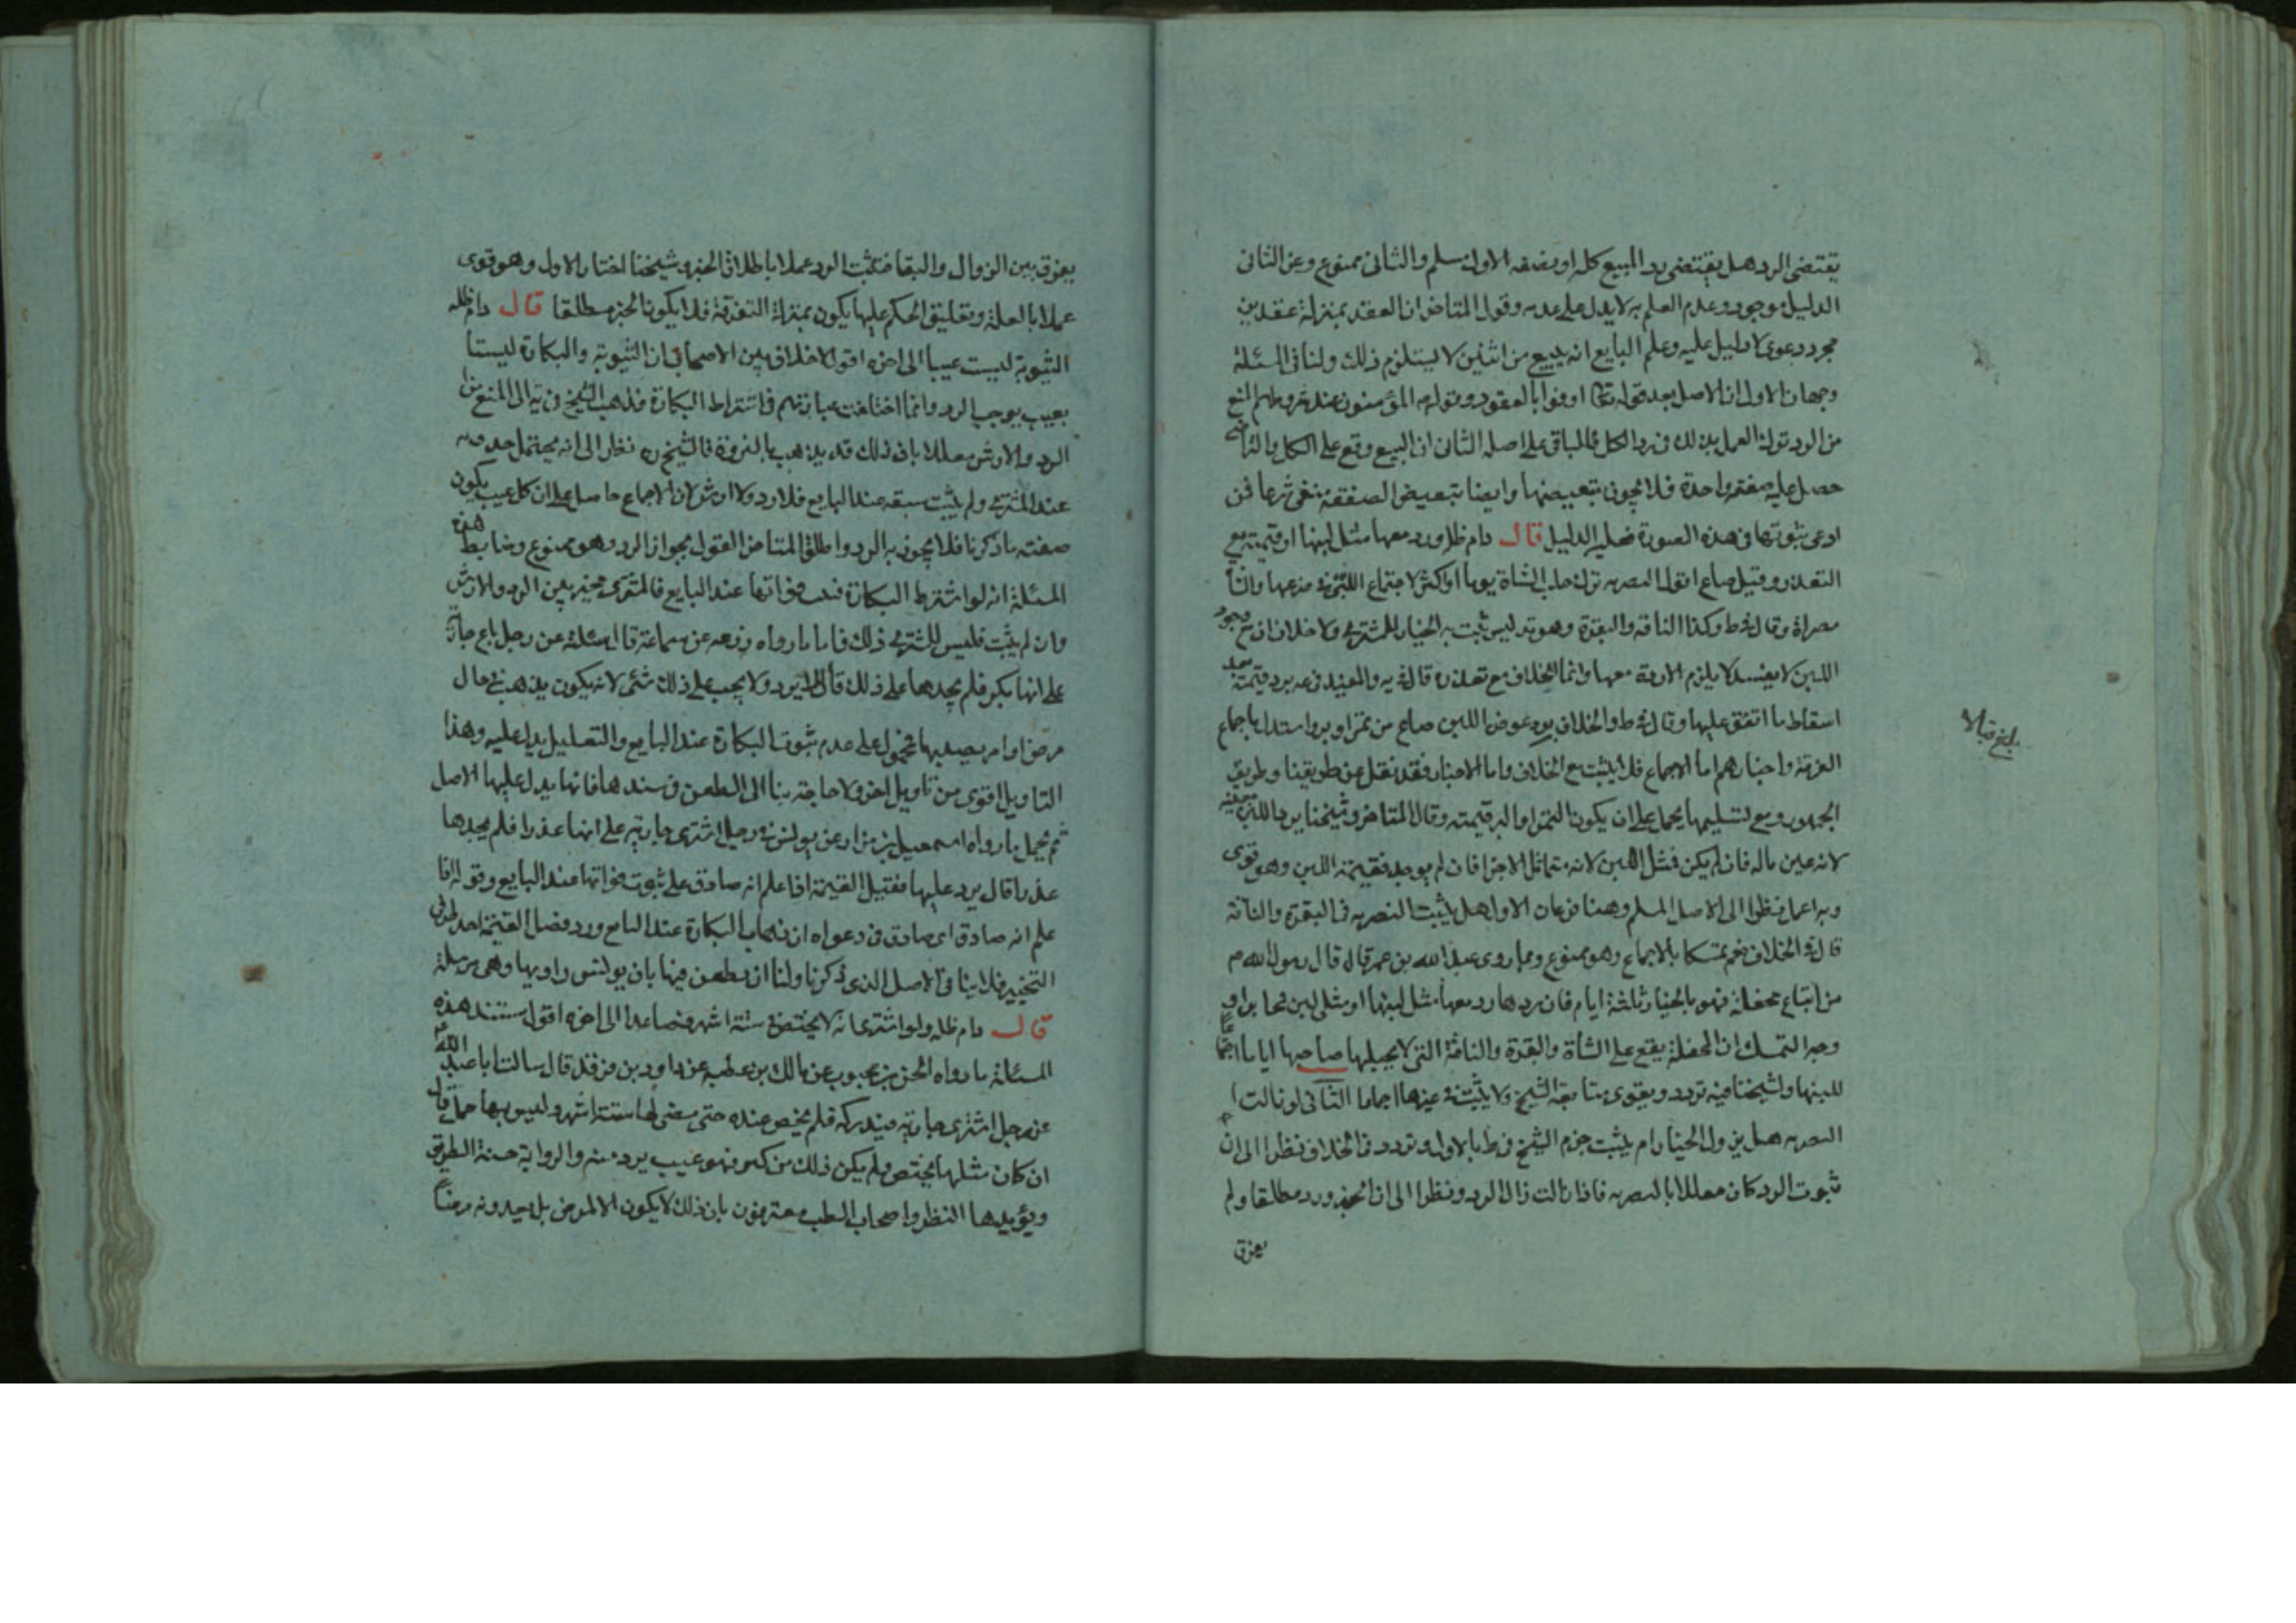 يقتضى الرد هل يقتضى رد المبيع كله او بعضه الاول مسلم والثانى ممنوع وعن الثانى
الدليل موجود وعدم العلم به لا يدل على عدمه وقول المتاخر ان العقد بمنزلة عقدين
مجرد دعوى لا دليل عليه وعلم البايع انه يبيع من اثنين لا يستلزم ذلك ولنا فى المسئلة
وجهان الاول ان الاصل بعد قوله تعالى اوفوا بالعقود وقوله المؤمنون عند شروطهم المنع
من الرد ترك العمل بذلك فى رد الكل فالباقى على اصله الثانى ان البيع وقع على الكل والتراضى
حصل عليه صفقة واحدة فلا يجوز تبعيضها وايضا تبعيض الصفقة منفى شرعا فمن
ادعى ثبوتها فى هذه الصورة فعليه الدليل قال دام ظله ورد معها مثل لبنها او قيمته مع
التعذر وقيل صاع اقول التصرية ترك حلب الشاة يوما او اكثر لاجتماع اللبن فى ضرعها والشاة
مصراة وقال فى ط وكذا الناقة والبقرة وهو تدليس ثبت به الخيار للمشترى ولا خلاف ان مع وجود
اللبن لا يفسد لا يلزم الا رده معها وانما الخلاف مع تعذره قال فى يه والمفيد فى عه يرد قيمته بعد
اسقاط ما انفق عليها وقال فى ط والخلاف يرد عوض اللبن صاع من تمر او بر واستدل باجماع
الفرقة واخبارهم اما الاجماع فلا يثبت مع الخلاف واما الاخبار فقد نقل من طريقنا وطريق
الجمهور ومع تسليمها يحمل على ان يكون التمر او البر قيمته وقال المتاخر وشيخنا يرد اللبن بعينه
لانه عين ماله فان لم يكن فمثل اللبن لانه متماثل الاجزا فان لم يوجد فقيمة اللبن وهو قوى
وبه اعمل نظرا الى الاصل المسلم وهنا فرعان الاول هل يثبت التصرية فى البقرة والناقة
قال فى الخلاف نعم تمسكا بالاجماع وهو ممنوع وبما روى عبد الله بن عمر قال قال رسول الله م
من ابتاع محفلة فهو بالخيار ثلثة ايام فان ردها رد معها مثل لبنها او مثلى لبن قمحا براو
وجه التمسك ان المحفلة يقع على الشاة والبقرة والناقة التى لا يحبلها صاحبها اياما
للبنها ولشيخنا فيه تردد ويقوى متابعة الشيخ ولا يثبت فى غيرها اجماعا الثانى لو زالت
التصرية هل يزول الخيار ام يثبت جزم الشيخ فى ط بالاول وتردد فى الخلاف نظرا الى ان
ثبوت الرد كان معللا بالتصرية فاذا زالت زال الرد ونظرا الى ان الخبر ورد مطلقا ولم
يفرق
بلغ قبالا
يفرق بين الزوال والبقا فيثبت الرد عملا باطلاق الخبر وشيخنا اختار الاول وهو قوى
عملا بالعلة وتعليق الحكم عليها يكون بمنزلة التفرقة فلا يكون الخبر مطلقا قال دام ظله
الثيوبة ليست عيبا الى اخره اقول لا خلاف بين الاصحاب فى ان الثيوبة والبكارة ليستا
بعيب يوجب الرد وانما اختلفت عبارتهم فى اشتراط البكارة فذهب الشيخ فى يه الى المنع من
الرد والارش معللا بان ذلك قد يذهب بالنزوة فالشيخ ره نظر الى انه يحتمل حدوثه
عند المشترى ولم يثبت سبقه عند البايع فلا رد ولا ارش لان الاجماع حاصل على ان كل عيب يكون
صفته ما ذكرنا فلا يجوز به الرد واطلق المتاخر القول بجواز الرد وهو ممنوع وضابط هذه
المسئلة انه لو اشترط البكارة فثبت فواتها عند البايع فالمشترى مخير بين الرد والارش
وان لم يثبت فليس للمشترى ذلك فاما ما رواه زرعه عن سماعة قال سئلته عن رجل باع جارية
على انها بكر فلم يجدها على ذلك قال لا يرد ولا يجب على ذلك شئ لانه يكون يذهب فى حال
مرض او امر يصيبها فمحمول على عدم ثبوت البكارة عند البايع والتعليل يدل عليه وهذا
التاويل اقوى من تاويل اخر ولا حاجة بنا الى الطعن فى سندها فانها يدل عليها الاصل
ثم يحمل ما رواه اسمعيل بن مرار عن يونس فى رجل اشترى جارية على انها عذرا فلم يجدها
عذرا قال يرد عليها فضل القيمة اذا علم انه صادق على ثبوت فواتها عند البايع وقوله اذا
علم انه صادق اى صادق فى دعواه ان ذهاب البكارة عند البايع ورد فضل القيمة احد طرفى
التخيير فلا ينافى الاصل الذى ذكرنا ولنا ان نطعن فيها بان يونس راويها وهى مرسلة
قال دام ظله ولو اشترى امة لا يحيض فى ستة اشهر فصاعدا الى اخره اقول مستند هذه
المسئلة ما رواه الحسن بن محبوب عن مالك بن عطيه عن داود بن فرقد قال سالت ابا عبد الله ع
عن رجل اشترى جارية مدركة فلم يحض عنده حتى مضى لها ستة اشهر وليس بها حمل قال
ان كان مثلها تحيض ولم يكن ذلك من كبر فهو عيب يرد منه والرواية حسنة الطريق
ويؤيدها النظر واصحاب الطب معترفون بان ذلك لا يكون الا لمرض بل يعدونه مرضا